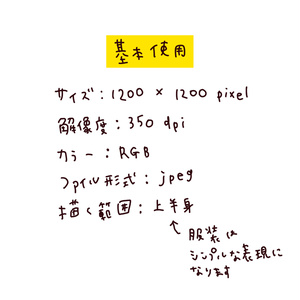 基本使用
サイズ：1200 × 1200 pixel
解像度：350 dpi
カラー：RGB
ファイル形式：jpeg
描く範囲：上半身
服装は
シンプルな表現に
なります